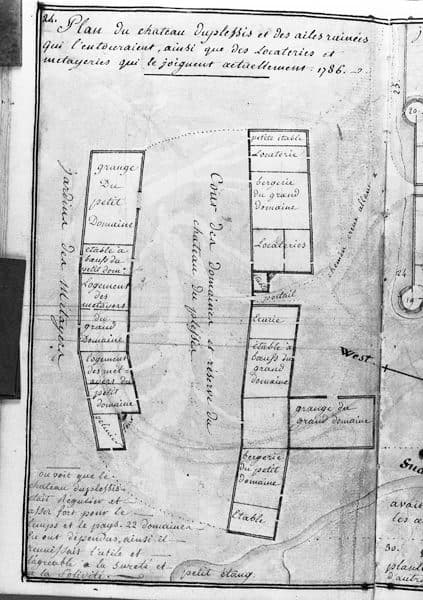 24.
Plan du chateau duplessis et des ailes ruinées
qui l'entouraient, ainsi que des Locateries et
métayeries qui le joignent actuellement. 1786.
grange
Du
petit
Domaine
étable à
bœufs du
petit dom.e
Logement
des
métayers
du
grand
Domaine
logement
des mét-
ayers du
petit
domaine
Jardins des Métayers
Cour des domaines et réserve du
chateau du plessis
petite étable
Locaterie
bergerie
du grand
domaine
Locateries
portail
écurie
étable à
bœufs du
grand
domaine
grange du
grand domaine
bergerie
du petit
domaine
étable
chemin creux allant a
West
25
20
24
on voit que le
chateau duplessis
était régulier et
assez fort pour le
temps et le pays. 22 domaines
en ont dépendus, ainsi il
réunissait l'utile et
l'agréable a la sureté et
a la solidité.
petit étang
Sud
avait
les a
30.
plant
d'autre